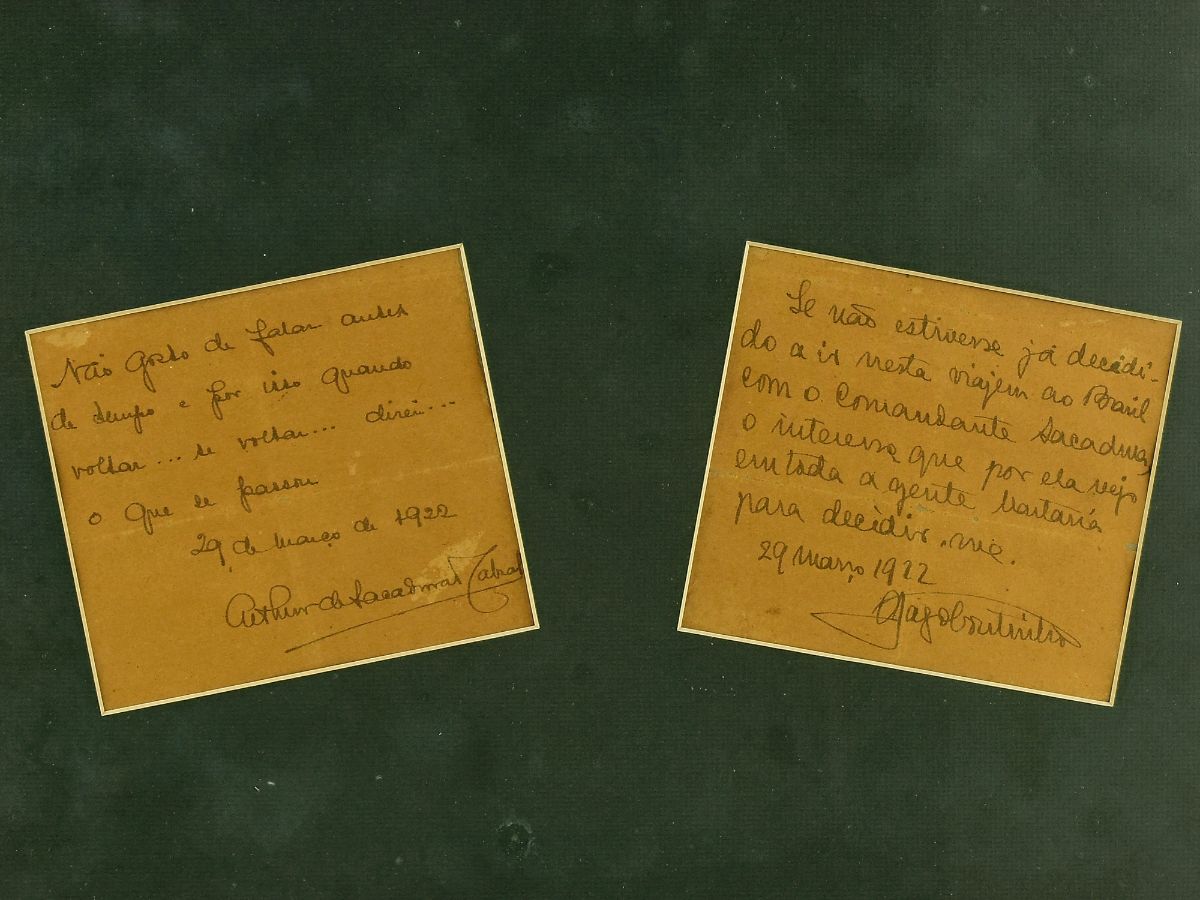 Não gosto de falar antes
de tempo e por isso quando
voltar... se voltar... direi...
o que se passou
29 de março de 1922
Arthur de Sacadura Cabral
Se não estivesse já decidi-
do a ir nesta viajem ao Brasil
com o Comandante Sacadura,
o interesse que por ela vejo
em toda a gente bastaria
para decidir-me.
29 março 1922
Gago Coutinho